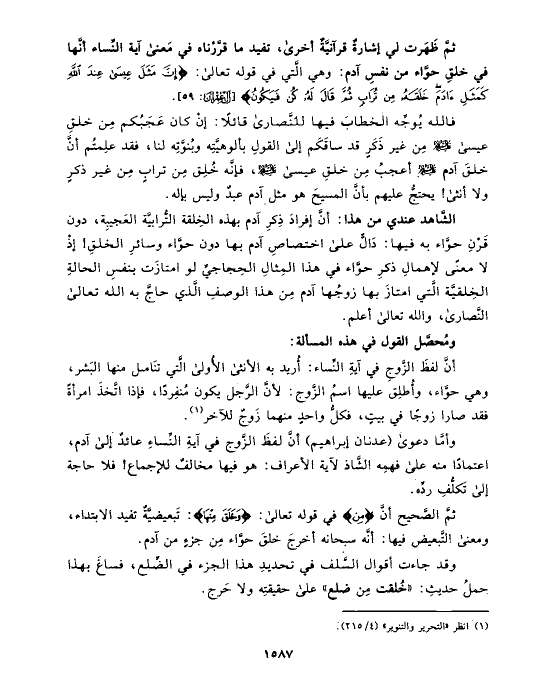 ثمَّ ظَهَرت لي إشارةٌ قرآنيَّةٌ أخرىٰ، تفيد ما قرَّرْناه في مَعنىٰ آية النِّساء أنَّها
في خلقِ حوَّاء من نفسِ آدم: وهي الَّتي في قوله تعالىٰ: ﴿إِنَّ مَثَلَ عِيسَىٰ عِندَ ٱللَّهِ
كَمَثَلِ ءَادَمَۖ خَلَقَهُۥ مِن تُرَابٖ ثُمَّ قَالَ لَهُۥ كُن فَيَكُونُ﴾ [آلعمران: ٥٩].
فالله يُوجِّه الخطابَ فيها للنَّصارىٰ قائلًا: إنْ كان عَجَبُكم مِن خلقِ
عيسىٰ ﷺ مِن غير ذَكَرٍ قد ساقَكُم إلىٰ القولِ بألوهيَّتِه وبُنوَّتِه لنا، فقد علِمتُم أنَّ
خلقَ آدم ﷺ أعجبُ مِن خلقِ عيسىٰ ﷺ، فإنَّه خُلِق مِن ترابٍ مِن غير ذكرٍ
ولا أنثىٰ! يحتجُّ عليهم بأنَّ المسيحَ هو مثل آدم عبدٌ وليس بإله.
الشَّاهد عندي مِن هذا: أنَّ إفرادَ ذِكرِ آدم بهذه الخِلقة التُّرابيَّة العَجيبة، دون
قَرْنِ حوَّاء به فيها: دَالٌّ علىٰ اختصاصِ آدم بها دون حوَّاء وسائرِ الخلقِ! إذْ
لا معنًى لإهمالِ ذكرِ حوَّاء في هذا المِثالِ الحِجاجيِّ لو امتازَت بنفسِ الحالةِ
الخِلقيَّة الَّتي امتازَ بها زوجُها آدم مِن هذا الوصفِ الَّذي حاجَّ به الله تعالىٰ
النَّصارىٰ، والله تعالىٰ أعلم.
ومُحصَّل القول في هذه المسألة:
أنَّ لفظَ الزَّوج في آيةِ النِّساء: أُريد به الأنثىٰ الأولىٰ الَّتي تناسل منها البَشر،
وهي حوَّاء، وأُطلِق عليها اسمُ الزَّوج: لأنَّ الرَّجل يكون مُنفرِدًا، فإذا اتَّخذَ امرأةً
فقد صارا زوجًا في بيتٍ، فكلُّ واحدٍ منهما زَوجٌ للآخر(١).
وأمَّا دعوىٰ (عدنان إبراهيم) أنَّ لفظَ الزَّوج في آيةِ النِّساءِ عائدٌ إلىٰ آدم،
اعتمادًا منه علىٰ فهمِه الشَّاذ لآية الأعراف: هو فيها مخالفٌ للإجماع! فلا حاجة
إلىٰ تَكلُّفِ ردِّه.
ثمَّ الصَّحيح أنَّ ﴿مِن﴾ في قوله تعالىٰ: ﴿وَخَلَقَ مِنْهَا﴾: تَبعيضيَّةٌ تفيد الابتداء،
ومعنىٰ التَّبعيض فيها: أنَّه سبحانه أخرجَ خلقَ حوَّاء مِن جزءٍ من آدم.
وقد جاءت أقوال السَّلف في تحديدِ هذا الجزء في الضِّلع، فساغَ بهذا
حملُ حديثِ: «خُلقت مِن ضلع» علىٰ حقيقتِه ولا حَرج.
(١) انظر «التحرير والتنوير» (٤/ ٢١٥).
١٥٨٧